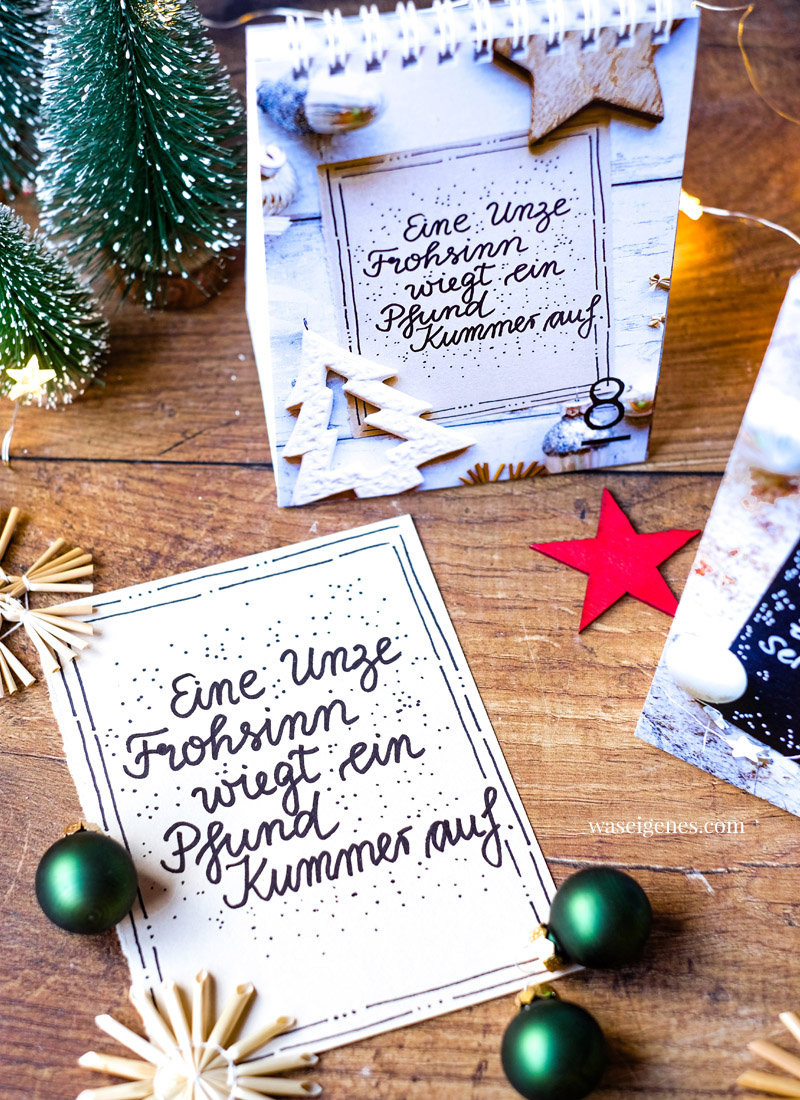 Eine Unze
Frohsinn
wiegt ein
Pfund
Kummer auf.
8
Eine Unze
Frohsinn
wiegt ein
Pfund
Kummer auf.
waseigenes.com